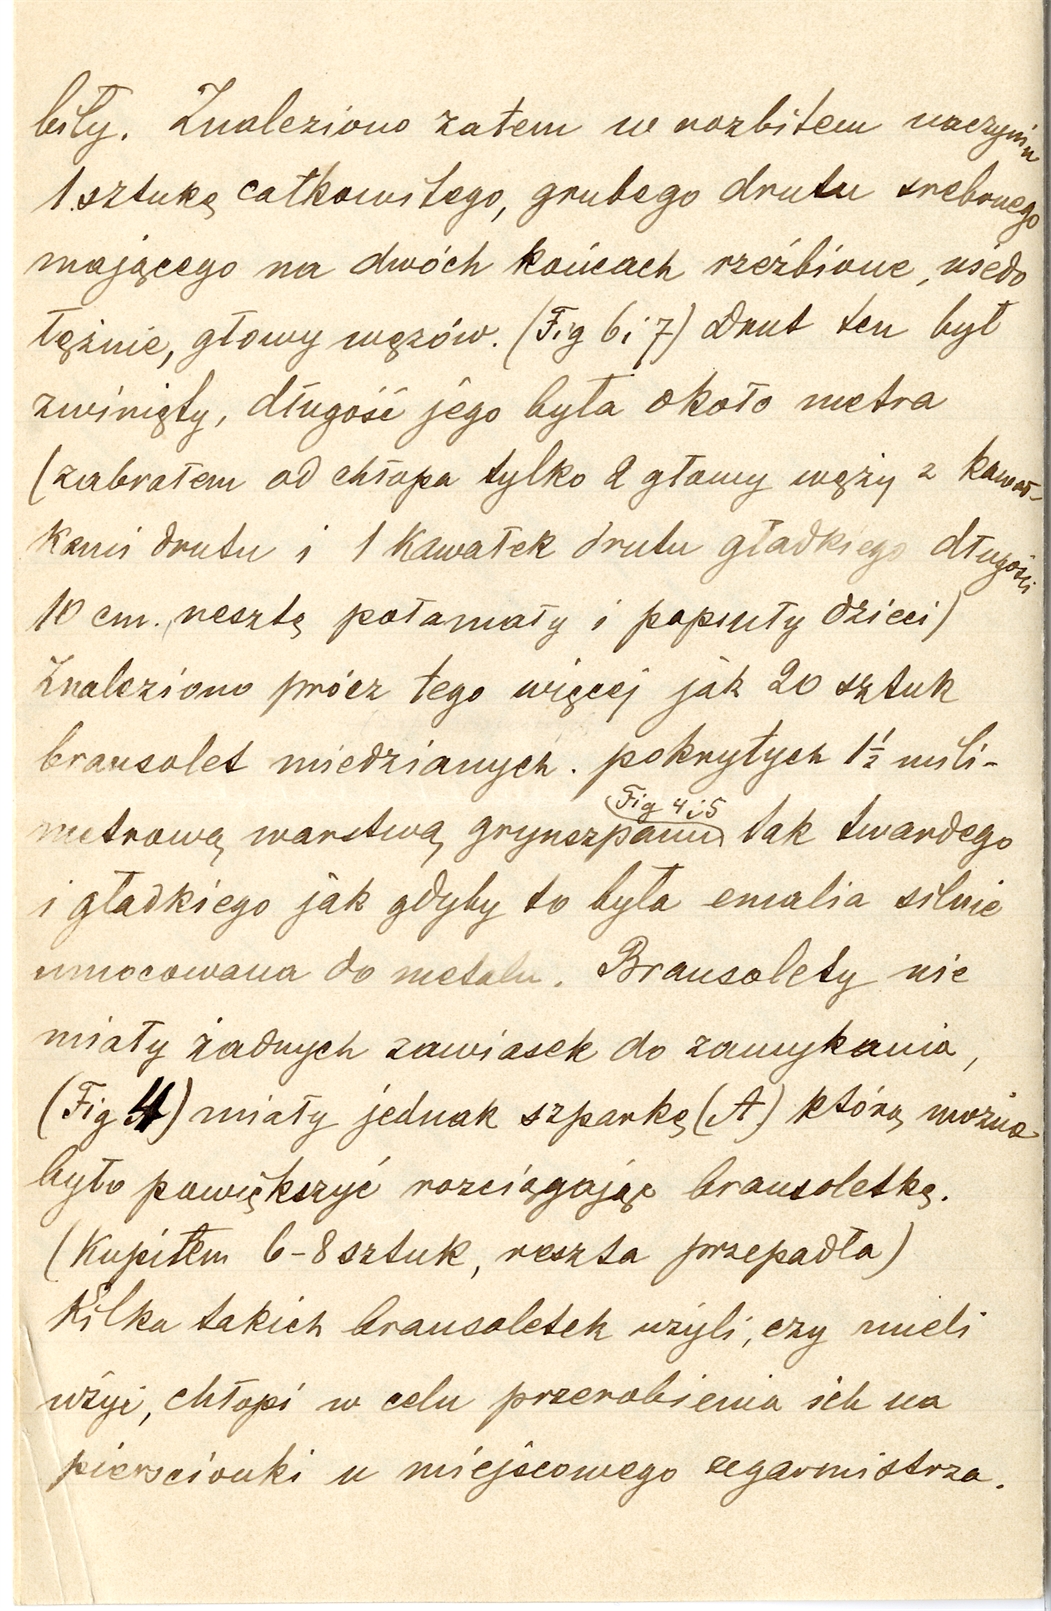 biły. Znaleziono zatem w rozbitem naczyniu
1 sztukę całkowitego, grubego drutu srebrnego
mającego na dwóch końcach rzeźbione, niedo
łężnie, głowy węzów. (Fig 6 i 7) Drut ten był
zwinięty, długość jego była około metra
(zabrałem od chłopa tylko 2 głowy węży z kawał-
kami drutu i 1 kawałek drutu gładkiego długości
10 cm., resztę połamały i popsuły dzieci)
Znaleziono prócz tego więcej jak 20 sztuk
bransolet miedzianych. pokrytych 1½ mili-
(Fig 4 i 5)
metrową warstwą grynszpanu tak twardego
i gładkiego jak gdyby to była emalia silnie
umocowana do metalu. Bransolety nie
miały żadnych zawiasek do zamykania,
(Fig 4) miały jednak szparkę (A) którą można
było powiększyć rozciągając bransoletkę.
(Kupiłem 6-8 sztuk, reszta przepadła)
Kilka takich bransoletek użyli, czy mieli
użyć, chłopi w celu przerobienia ich na
pierscionki u miejscowego zegarmistrza.